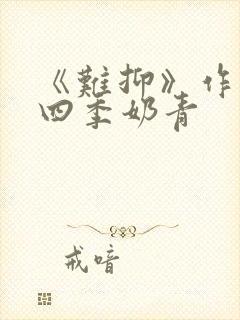 《難抑》作
四季奶青
戒喑